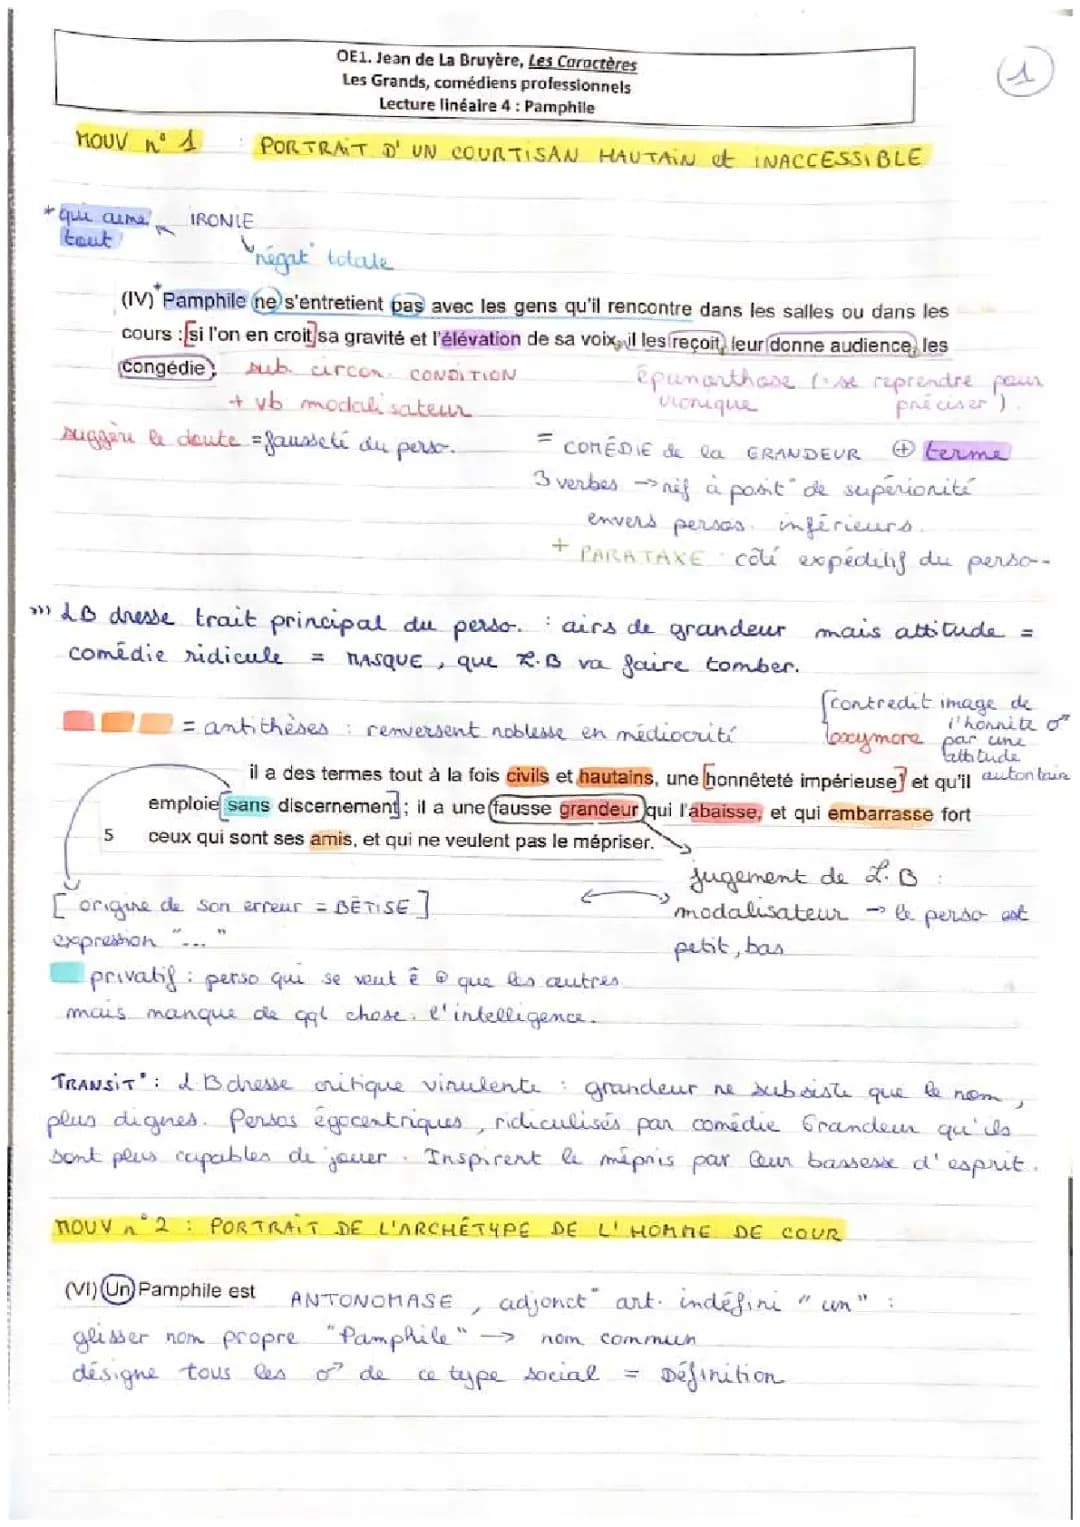 OE1. Jean de La Bruyère, Les Caractères
Les Grands, comédiens professionnels
Lecture linéaire 4 : Pamphile
1
MOUV n° 1 : PORTRAIT D'UN COURTISAN HAUTAIN et INACCESSIBLE
* qui aime tout
IRONIE
négat° totale
(IV) * Pamphile ne s'entretient pas avec les gens qu'il rencontre dans les salles ou dans les
cours : [si l'on en croit] sa gravité et l'élévation de sa voix, il les reçoit, leur donne audience, les
congédie ;
sub. circon. CONDITION
+ vb modalisateur
suggère le doute = fausseté du perso.
épanorthose (= se reprendre pour
ironique préciser).
= COMÉDIE de la GRANDEUR ⊕ terme
3 verbes → réf à posit° de supériorité
envers persos. inférieurs.
+ PARATAXE : côté expéditif du perso-
>>> LB dresse trait principal du perso. : airs de grandeur mais attitude =
comédie ridicule = MASQUE, que L.B va faire tomber.
= antithèses : renversent noblesse en médiocrité
contredit image de
l'honnête ♂
oxymore par une
attitude
autoritaire
il a des termes tout à la fois civils et hautains, une [honnêteté impérieuse] et qu'il
emploie [sans discernement] ; il a une fausse grandeur qui l'abaisse, et qui embarrasse fort
5 ceux qui sont ses amis, et qui ne veulent pas le mépriser.
[origine de son erreur = BÊTISE]
expression "..."
jugement de L.B :
modalisateur → le perso est
petit, bas
privatif : perso qui se veut ê ⊕ que les autres
mais manque de qql chose : l'intelligence.
TRANSIT° : LB dresse critique virulente : grandeur ne subsiste que le nom,
plus dignes. Persos égocentriques, ridiculisés par comédie Grandeur qu'ils
sont plus capables de jouer. Inspirent le mépris par leur bassesse d'esprit.
MOUV n° 2 : PORTRAIT DE L'ARCHÉTYPE DE L'HOMME DE COUR
(VI) Un Pamphile est
ANTONOMASE, adjonct° art. indéfini "un" :
glisser nom propre "Pamphile" → nom commun
désigne tous les ♂ de ce type social = Définition